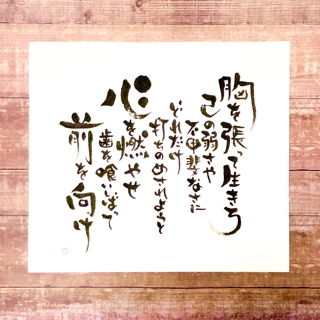 胸を張って生きろ
己の弱さや
不甲斐なさに
どれだけ
打ちのめされようと
心を燃やせ
歯を喰いしばって
前を向け